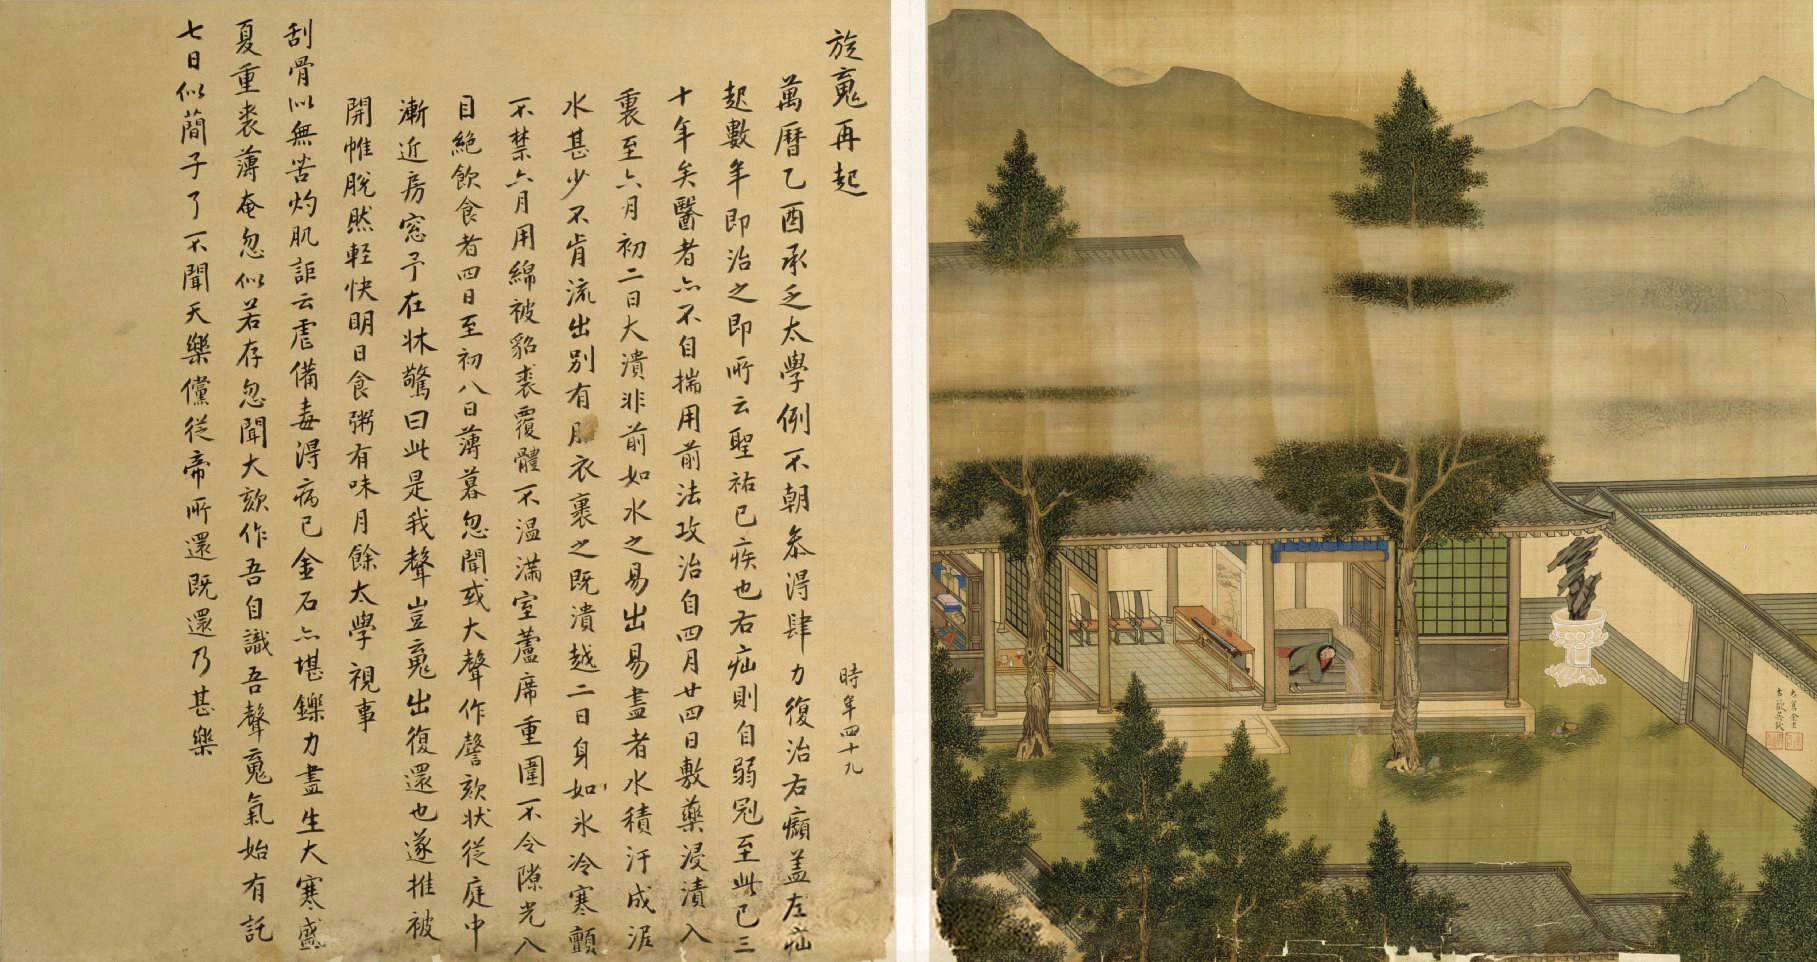 旋䰟再起
時年四十九
萬曆乙酉承乏太學例不朝參得肆力復治右㿗蓋左疝
起數年即治之即所云聖祐已疾也右疝則自弱冠至此已三
十年矣醫者亦不自揣用前法攻治自四月廿四日敷藥浸漬入
裏至六月初二日大潰非前如水之易出易盡者水積汙成泥
水甚少不肯流出別有 衣裹之既潰越二日身如冰冷寒顫
不禁六月用綿被貂裘覆體不溫滿室蘆席重圍不令隙光入
目絕飲食者四日至初八日薄暮忽聞或大聲作謦欬狀從庭中
漸近房窓予在牀驚曰此是我聲豈䰟出復還也遂推被
開帷脫然輕快明日食粥有味月餘太學視事
刮骨似無苦灼肌詎云虐備毒得病已金石亦堪鑠力盡生大寒盛
夏重裘薄奄忽似若存忽聞大欬作吾自識吾聲䰟氣始有託
七日似簡子了不聞天樂儻從帝所還既還乃甚樂